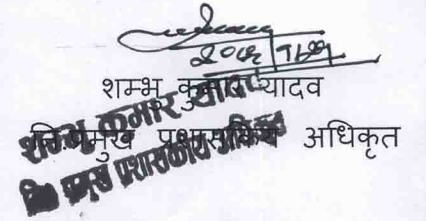 शम्भु कुमार यादव
नि.प्रमुख प्रशासकिय अधिकृत
शम्भु कुमार यादव
नि प्रमुख प्रशासकीय अधिकृत